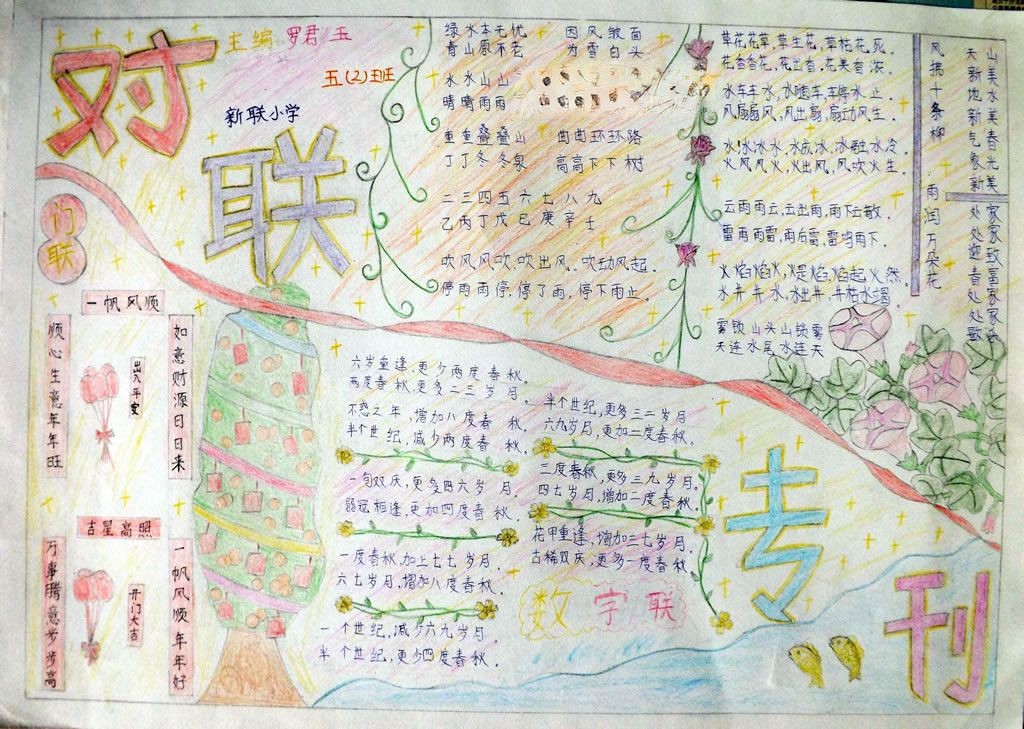 对联专刊
主编 罗君玉
五(2)班
新联小学
绿水本无忧 因风皱面
青山原不老 为雪白头
水水山山
晴晴雨雨
重重叠叠山 曲曲环环路
丁丁冬冬泉 高高下下树
二三四五六七八九
乙丙丁戊己庚辛壬
吹风风吹，吹出风。吹动风起。
停雨雨停，停了雨，停下雨止。
草花花草，草生花，草枯花死。
花香香花，花出香，花美香浓。
水车车水，水随车，车停水止。
风扇扇风，风出扇，扇动风生。
水冰冰水，水成冰，冰融水冷。
火风风火，火出风，风吹火生。
云雨雨云，云出雨，雨下云散。
雷雨雨雷，雨后雷，雷鸣雨下。
火焰焰火，火是焰，焰起火然
水井井水，水出井，井枯水竭。
雾锁山头山锁雾
天连水尾水连天
风拂十条柳
雨润万朵花
山美水美春光美
天新地新气象新
家家致富家家乐
处处迎春处处歌
门联
一帆风顺
顺心生意年年旺
出入平安
如意财源日日来
吉星高照
万事腾意步步高
开门大吉
一帆风顺年年好
六岁重逢，更少两度春秋。
两度春秋，更多二三岁月。
不惑之年，增加八度春秋
半个世纪，减少两度春秋。
一旬双庆，更多四六岁月，
弱冠相逢，更加四度春秋。
一度春秋，加上七七岁月，
六七岁月，增加八度春秋。
一个世纪，减少六九岁月。
半个世纪，更少四度春秋。
半个世纪，更多三二岁月。
六九岁月，更加二度春秋。
三度春秋，更多三九岁月。
四七岁月，增加二度春秋。
花甲重逢，增加三七岁月。
古稀双庆，更多一度春秋。
数字联